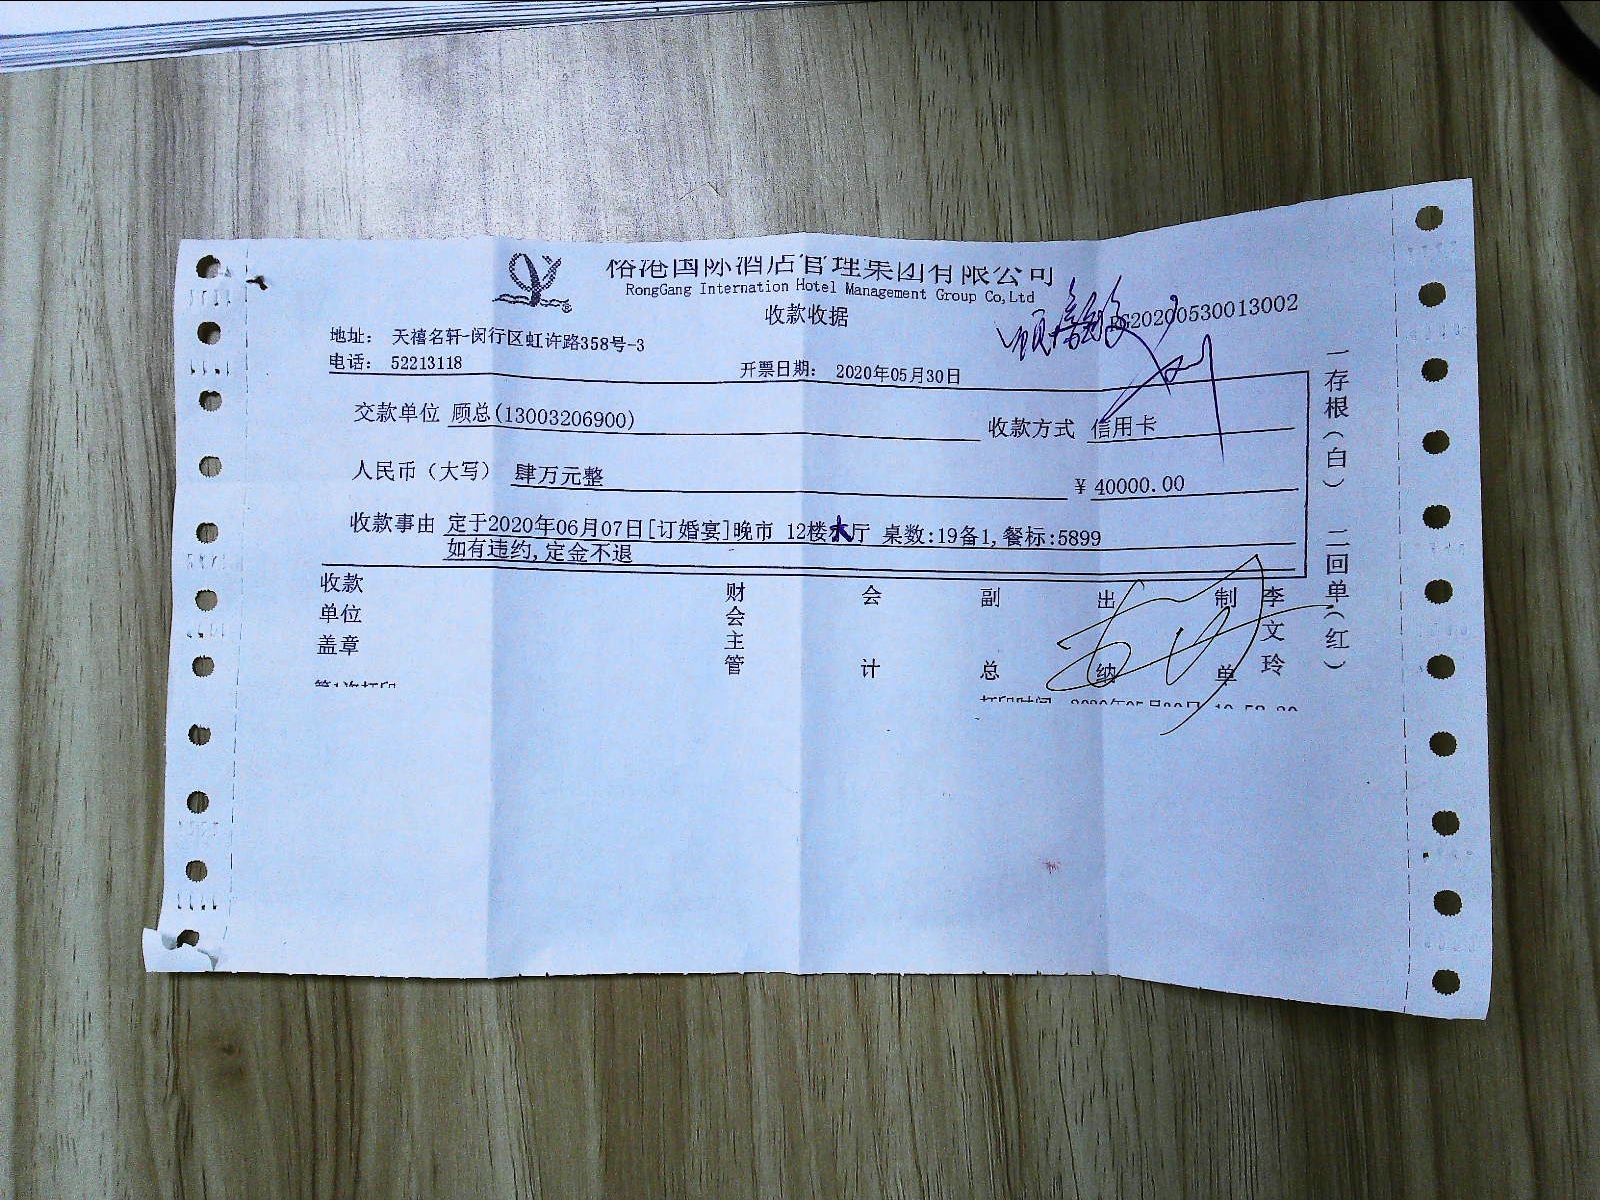 俗港国际酒店管理集团有限公司
RongGang Internation Hotel Management Group Co,Ltd
收款收据
20200530013002
地址: 天禧名轩-闵行区虹许路358号-3
电话: 52213118
开票日期: 2020年05月30日
交款单位 顾总(13003206900)
收款方式 信用卡
人民币(大写) 肆万元整
¥ 40000.00
收款事由 定于2020年06月07日[订婚宴]晚市 12楼 厅 桌数:19备1,餐标:5899
如有违约,定金不退
收款单位盖章
财会主管
会计
副总
出纳
制单
李文玲
一存根(白) 二回单(红)
第1次打印
打印时间